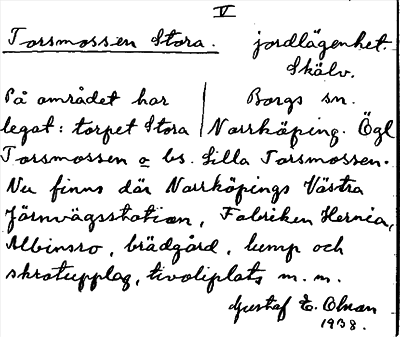 V
Torsmossen Stora. jordlägenhet.
Skälv.
På området har Borgs sn.
legat: torpet Stora Norrköping. Ögl
Torsmossen o bs. Lilla Torsmossen.
Nu finns där Norrköpings Västra
Järnvägsstation, Fabriken Hernia,
Albinsro, brädgård, lump och
skrotupplag, tivoliplats m. m.
Gustaf E. Olson
1938.